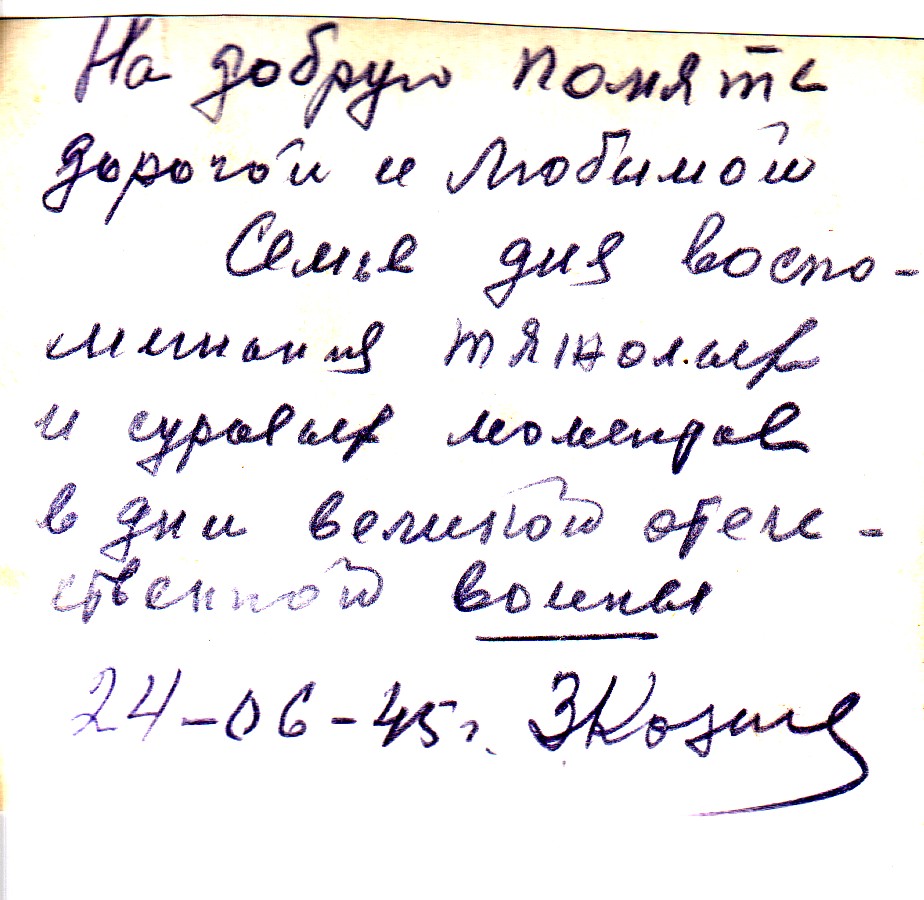 На добрую помять
дорогой и Любимой
Семье для воспо-
минания тяжолых
и суровых моментов
в дни великой отече-
ственной воины
24-06-45г.